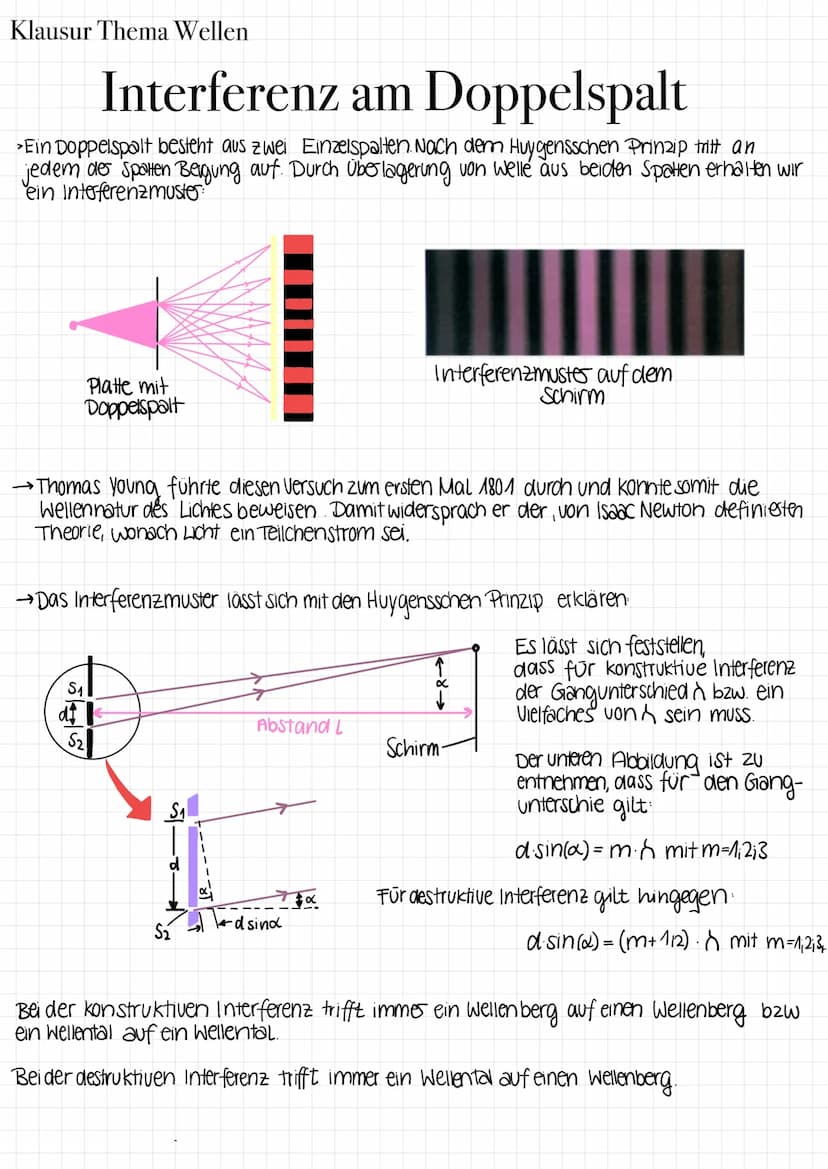 Klausur Thema Wellen
Interferenz am Doppelspalt
>Ein Doppelspalt besteht aus zwei Einzelspalten. Nach dem Huygensschen Prinzip tritt an
jedem der Spalten Beugung auf. Durch Überlagerung von Welle aus beiden Spalten erhalten wir
ein Interferenzmuster:
Platte mit
Doppelspalt
Interferenzmuster auf dem
Schirm
→Thomas Young führte diesen Versuch zum ersten Mal 1801 durch und konnte somit die
Wellennatur des Lichtes beweisen. Damit widersprach er der, von Isaac Newton definierten
Theorie, wonach Licht ein Teilchenstrom sei.
→Das Interferenzmuster lässt sich mit den Huygensschen Prinzip erklären:
S1
d
S2
α
Abstand L
Schirm
Es lässt sich feststellen,
dass für konstruktive Interferenz
der Gangunterschied λ bzw. ein
Vielfaches von λ sein muss.
Der unteren Abbildung ist zu
entnehmen, dass für den Gang-
unterschie gilt:
d·sin(α) = m·λ mit m=1;2;3
S1
d
α
α
S2
d sinα
Für destruktive Interferenz gilt hingegen:
d·sin(α) = (m+1/2)·λ mit m=1,2,3,
Bei der konstruktiven Interferenz trifft immer ein Wellenberg auf einen Wellenberg bzw
ein Wellental auf ein Wellental.
Bei der destruktiven Interferenz trifft immer ein Wellental auf einen Wellenberg.